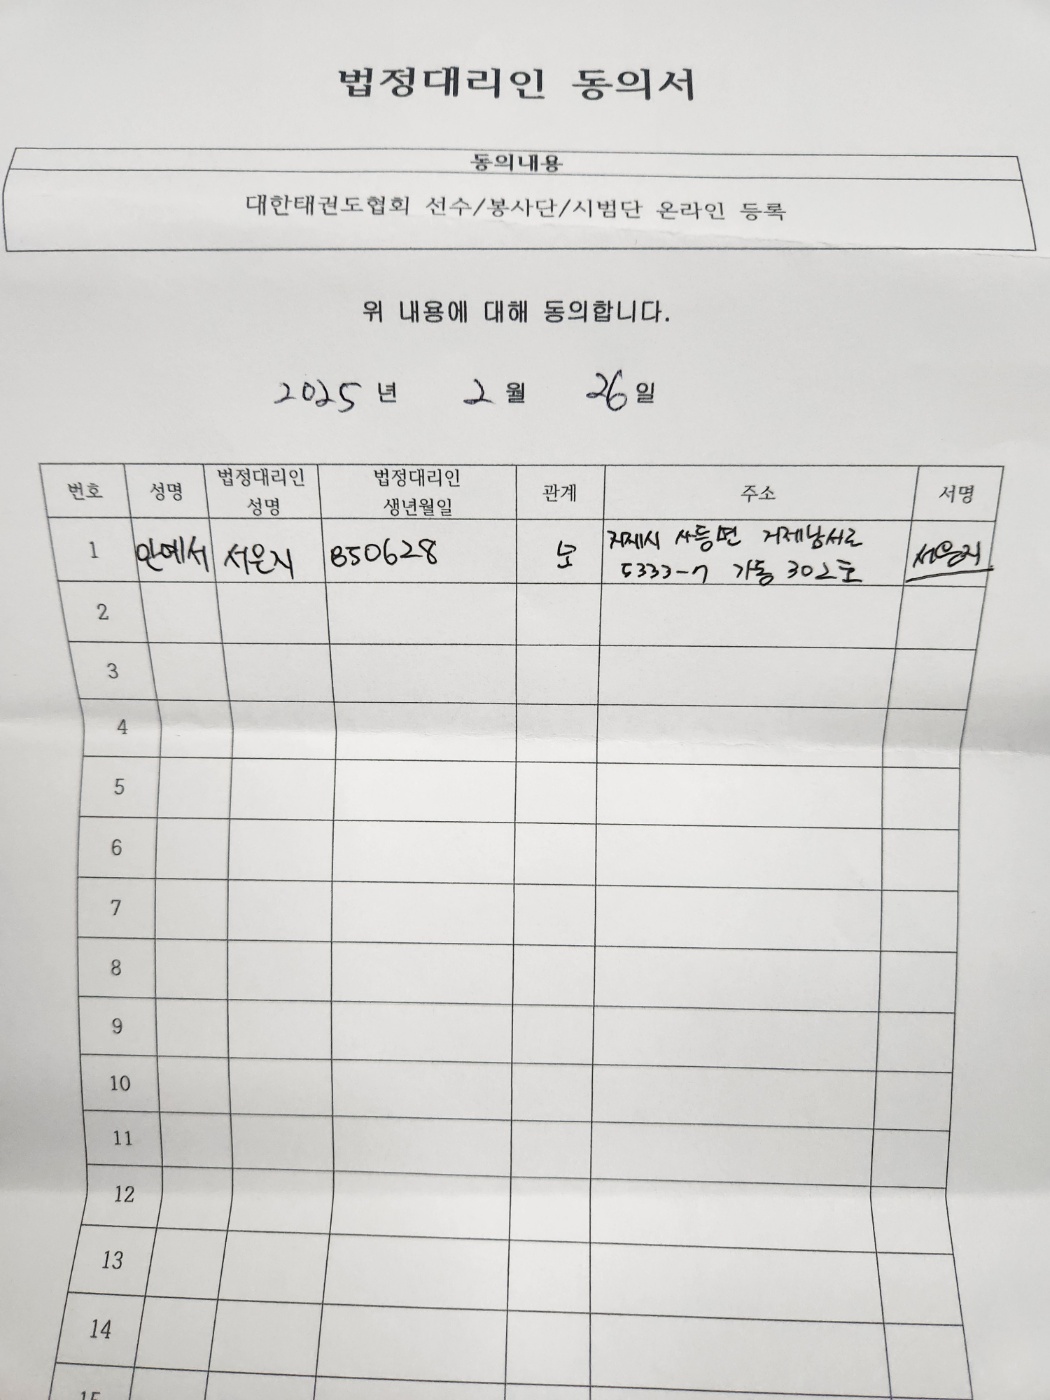 법정대리인 동의서
동의내용
대한태권도협회 선수/봉사단/시범단 온라인 등록
위 내용에 대해 동의합니다.
2025년 2월 26일
번호 성명 법정대리인 성명 법정대리인 생년월일 관계 주소 서명
1 안예서 서은지 850628 모 거제시 사등면 거제남서로
5333-7 가동 302호 서은지
2
3
4
5
6
7
8
9
10
11
12
13
14
15